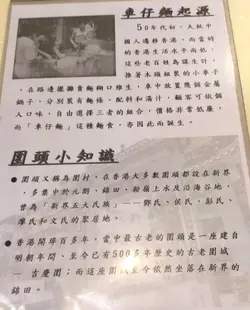 車仔麵起源
50年代初，大批中
國人遷移香港，而當時
的香港生活水平而低，這
些老百姓為謀生計，
推着木頭組裝的小車子
，在路邊擺攤賣麵糊口維生，車中放置幾個金屬
鍋子，分別裝有麵條、配料和湯汁，顧客可依個
人口味，自由選擇三者的組合，價格非常低廉，
而「車仔麵」這種麵食，亦因此而誕生。
圍頭小知識
●圍頭又稱為圍村，在香港大多數圍頭都設在新界
，多集中於元朗、錦田、粉嶺上水及沿海谷地，
曾為「新界五大氏族」——鄧氏、侯氏、彭氏、
廖氏和文氏的聚居地。
●香港開埠百多年，當中最古老的圍頭是一座建自
明朝年間、至今已有500多年歷史的古老圍城
—吉慶圍；而這座圍城至今依然坐落在新界的
錦田。